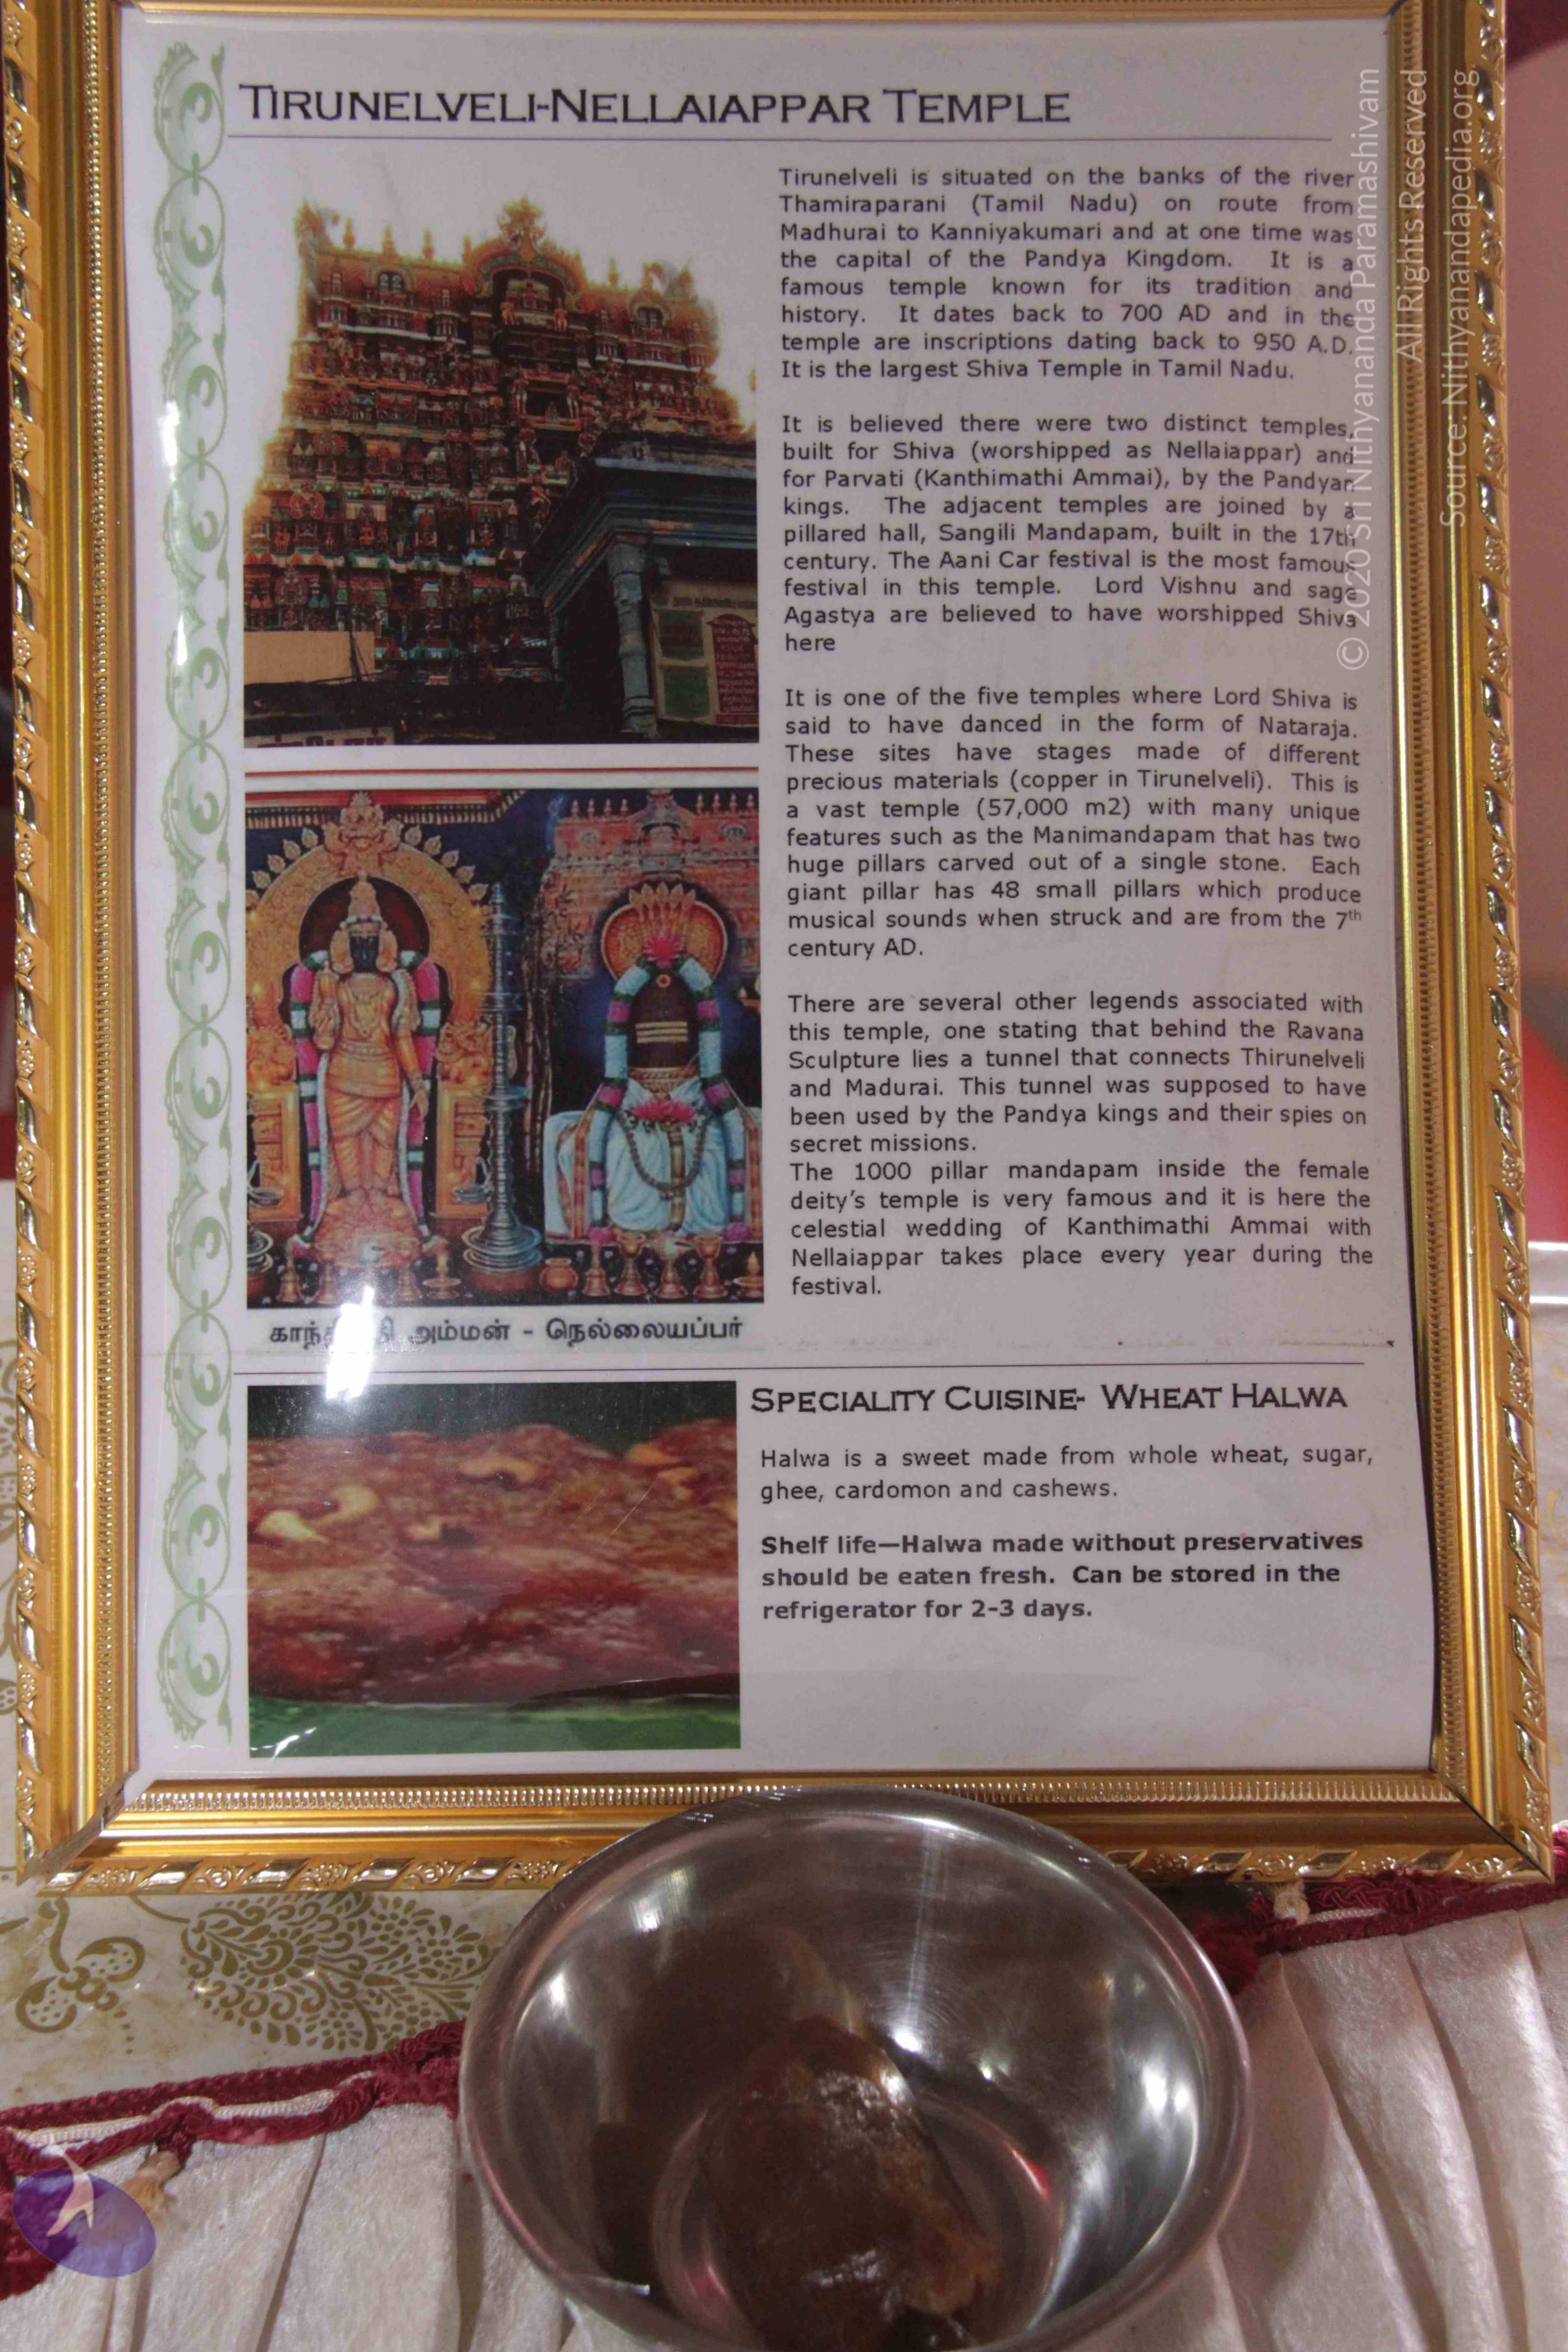 TIRUNELVELI-NELLAIAPPAR TEMPLE
Tirunelveli is situated on the banks of the river
Thamiraparani (Tamil Nadu) on route from
Madhurai to Kanniyakumari and at one time was
the capital of the Pandya Kingdom. It is a
famous temple known for its tradition and
history. It dates back to 700 AD and in the
temple are inscriptions dating back to 950 A.D.
It is the largest Shiva Temple in Tamil Nadu.
It is believed there were two distinct temples,
built for Shiva (worshipped as Nellaiappar) and
for Parvati (Kanthimathi Ammai), by the Pandyan
kings. The adjacent temples are joined by a
pillared hall, Sangili Mandapam, built in the 17th
century. The Aani Car festival is the most famous
festival in this temple. Lord Vishnu and sage
Agastya are believed to have worshipped Shiva
here
It is one of the five temples where Lord Shiva is
said to have danced in the form of Nataraja.
These sites have stages made of different
precious materials (copper in Tirunelveli). This is
a vast temple (57,000 m2) with many unique
features such as the Manimandapam that has two
huge pillars carved out of a single stone. Each
giant pillar has 48 small pillars which produce
musical sounds when struck and are from the 7th
century AD.
There are several other legends associated with
this temple, one stating that behind the Ravana
Sculpture lies a tunnel that connects Thirunelveli
and Madurai. This tunnel was supposed to have
been used by the Pandya kings and their spies on
secret missions.
The 1000 pillar mandapam inside the female
deity's temple is very famous and it is here the
celestial wedding of Kanthimathi Ammai with
Nellaiappar takes place every year during the
festival.
அம்மன் - நெல்லையப்பர்
SPECIALITY CUISINE- WHEAT HALWA
Halwa is a sweet made from whole wheat, sugar,
ghee, cardomon and cashews.
Shelf life—Halwa made without preservatives
should be eaten fresh. Can be stored in the
refrigerator for 2-3 days.
© 2020 Sri Nithyananda Paramashivam
All Rights Reserved
Source: Nithyanandapedia.org